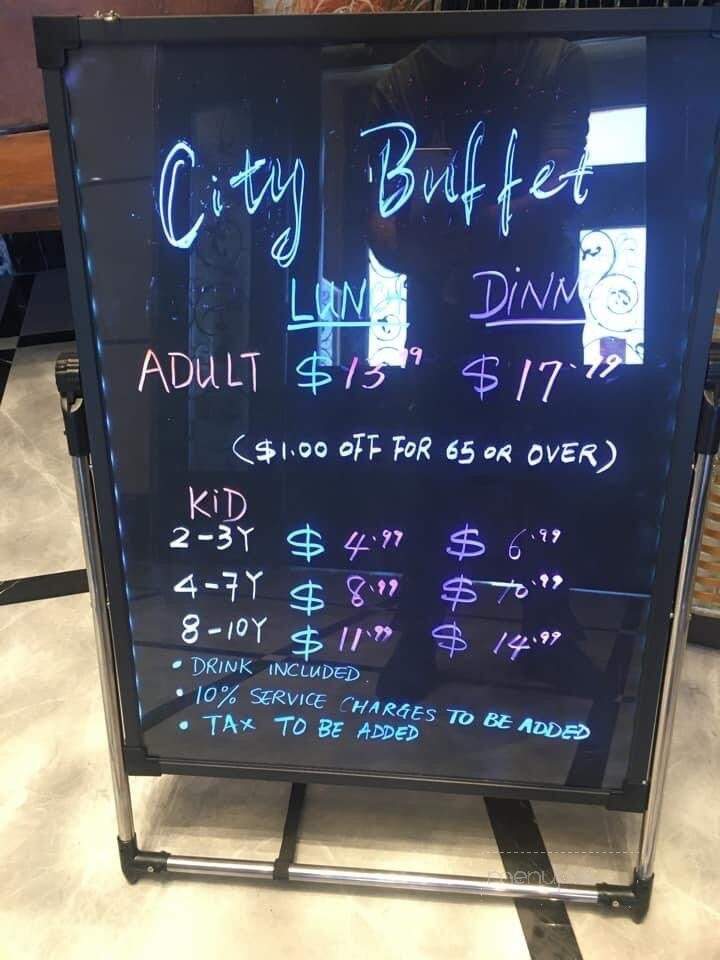 City Buffet
LUNCH DINN
ADULT $ 13.99 $ 17.99
($1.00 OFF FOR 65 OR OVER)
KiD
2-3Y $ 4.99 $ 6.99
4-7Y $ 8.99 $ 10.99
8-10Y $ 11.99 $ 14.99
• DRINK INCLUDED.
• 10% SERVICE CHARGES TO BE ADDED
• TAX TO BE ADDED